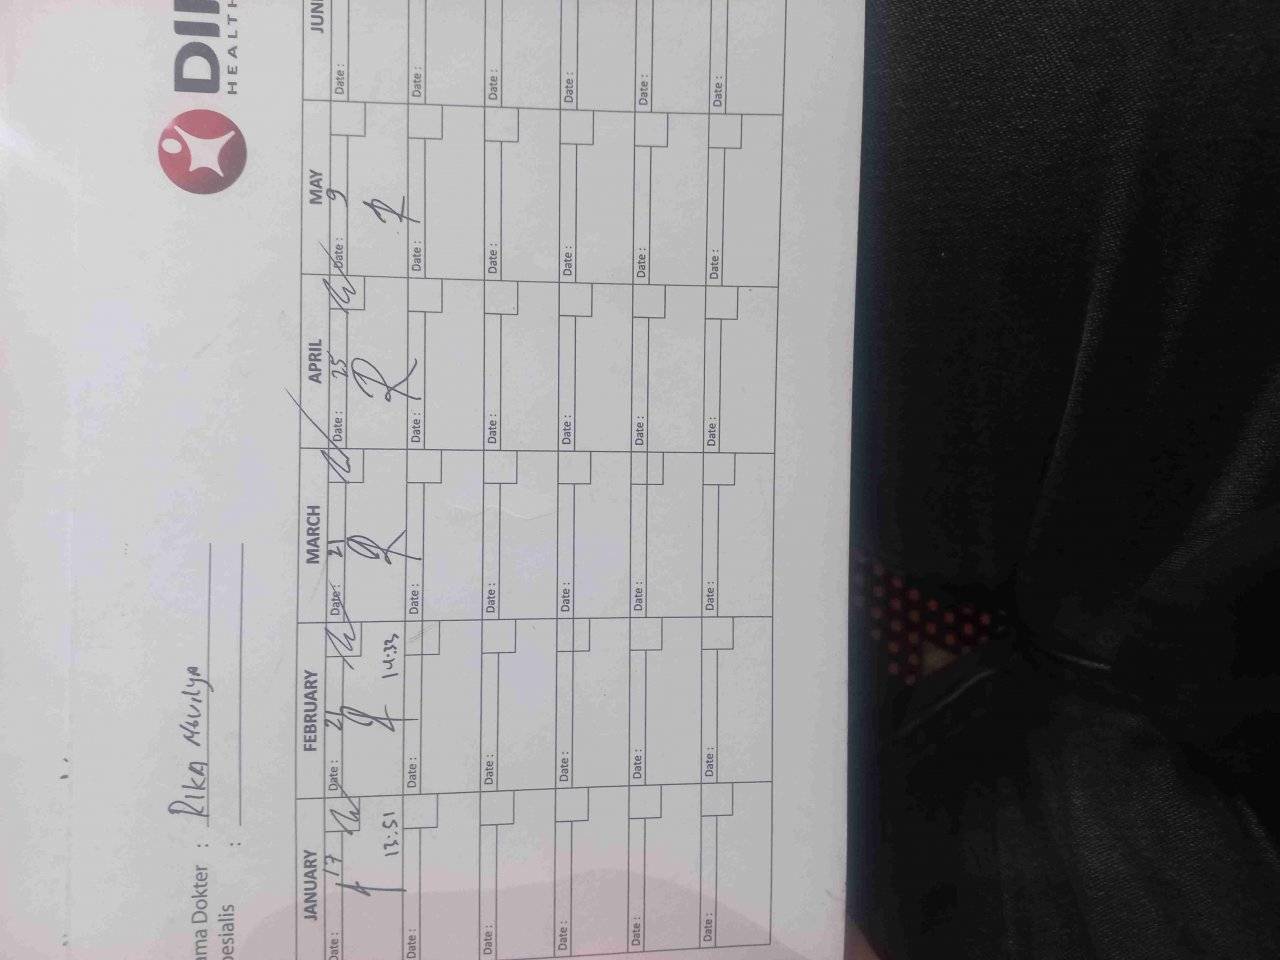 DI
HEALTH
ama Dokter : RIKA MAULIYA
pesialis :
JANUARY FEBRUARY MARCH APRIL MAY JUN
Date : 17 Date : 21 Date : 21 Date : 25 Date : 9 Date :
13.51 14.33
Date : Date : Date : Date : Date : Date :
Date : Date : Date : Date : Date : Date :
Date : Date : Date : Date : Date : Date :
Date : Date : Date : Date : Date : Date :
Date : Date : Date : Date : Date : Date :